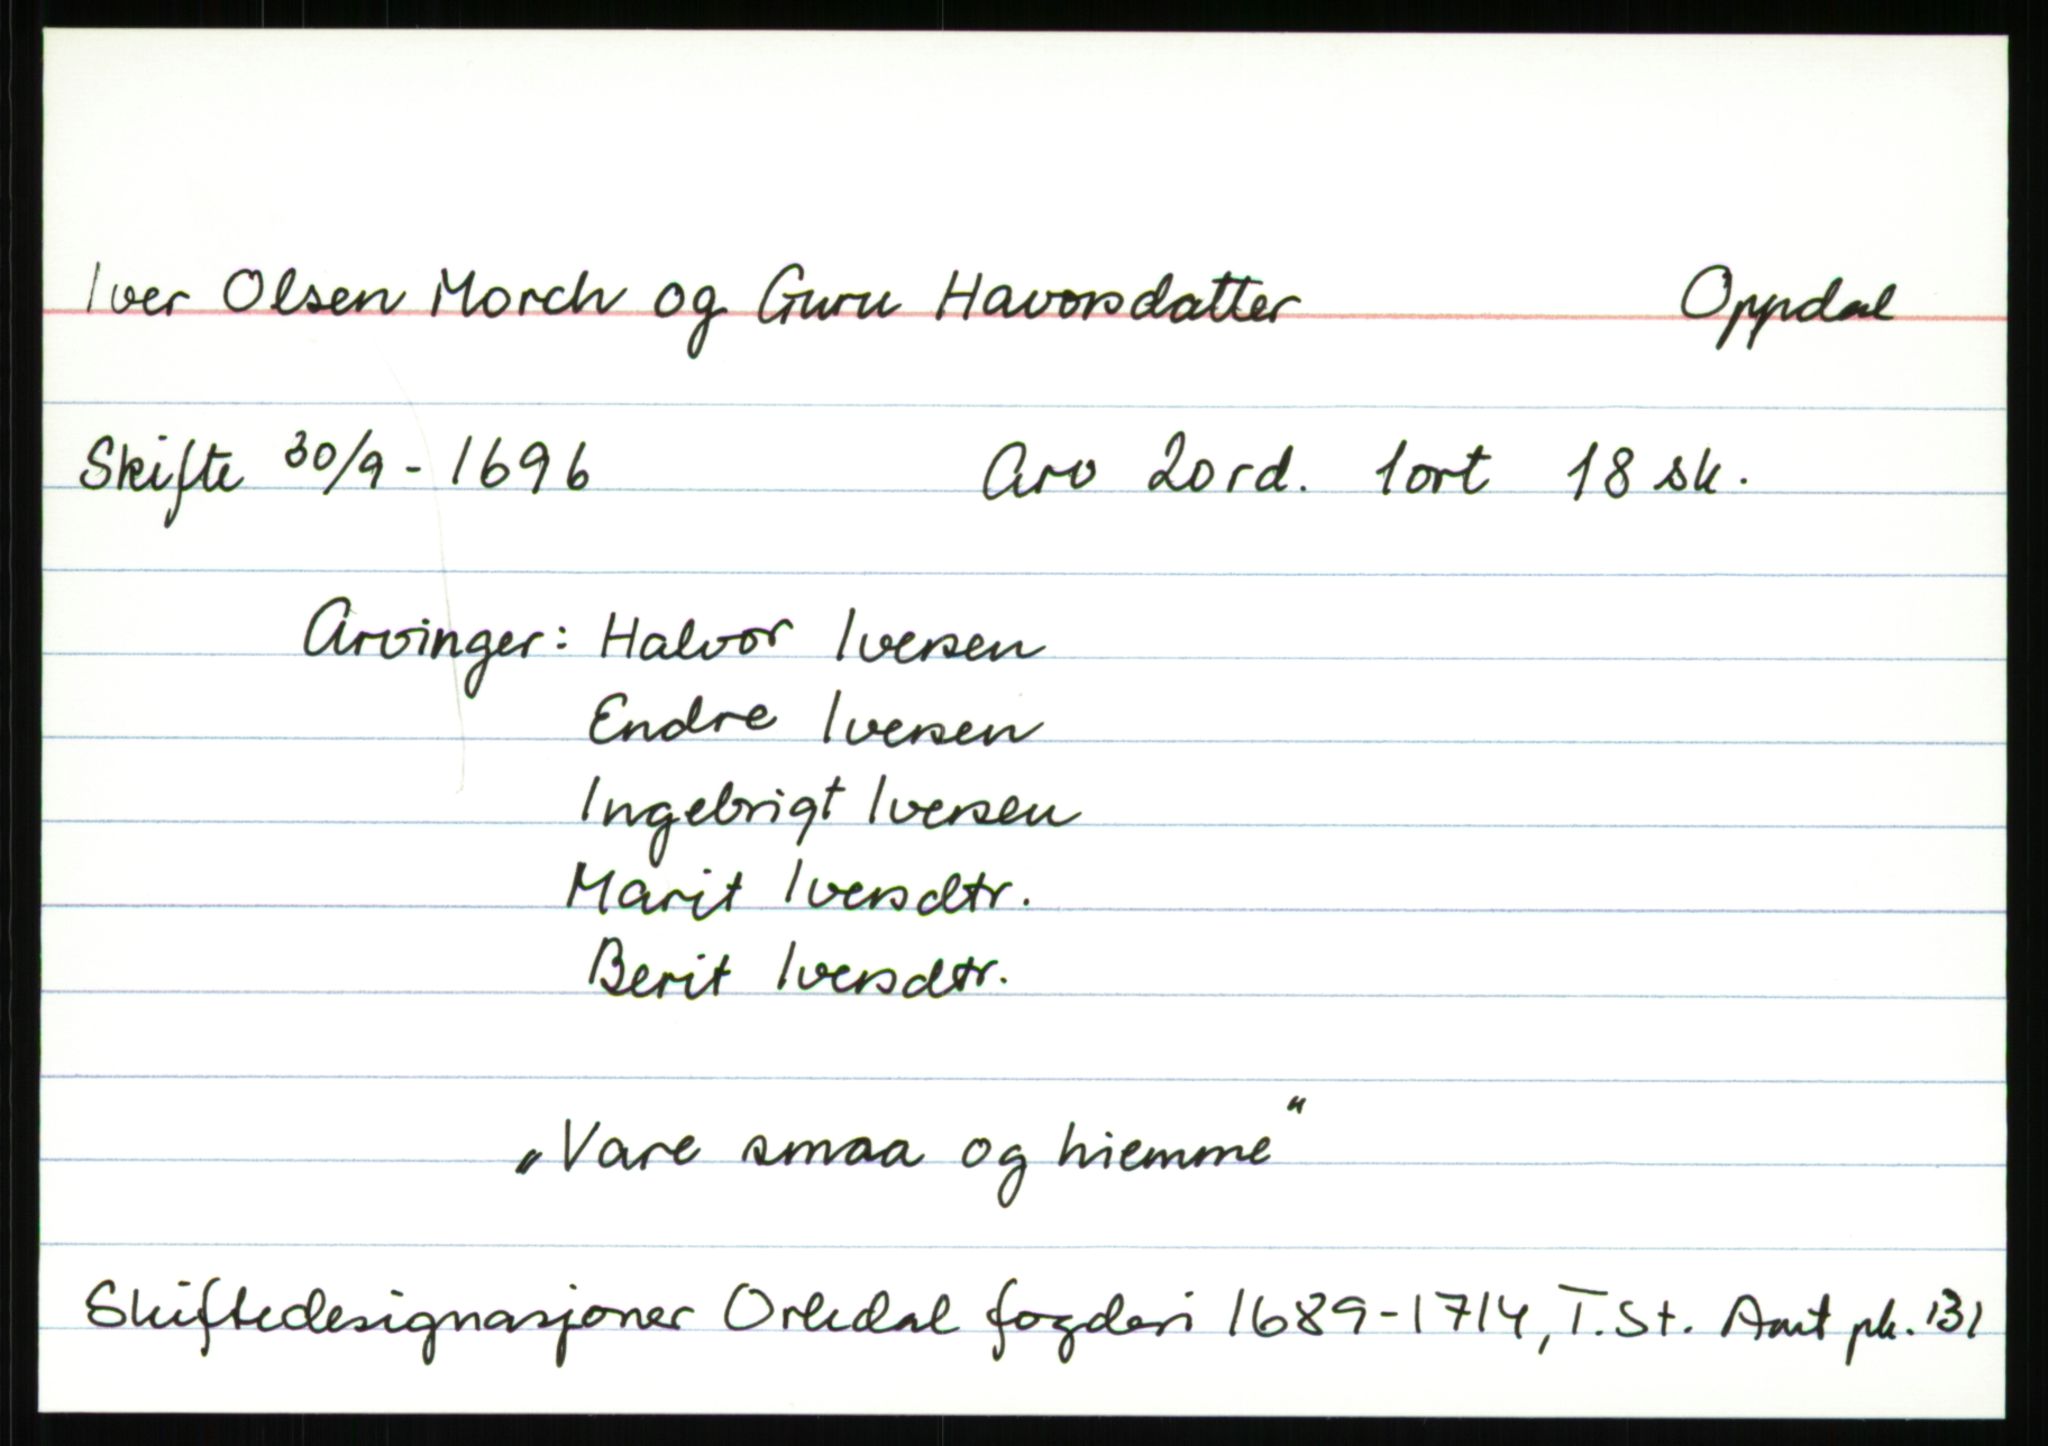 Iver Olsen Morch og Guru Havorsdatter Oppdal
Skifte 30/9 - 1696 Arv 20 rd. 1 ort 18 sk.
Arvinger: Halvor Iversen
Endre Iversen
Ingebrigt Iversen
Marit Iversdtr.
Berit Iversdtr.
„Vare smaa og hiemme“
Skiftedesignasjoner Orkdal fogderi 1689-1714, T. St. Amt pk. 131